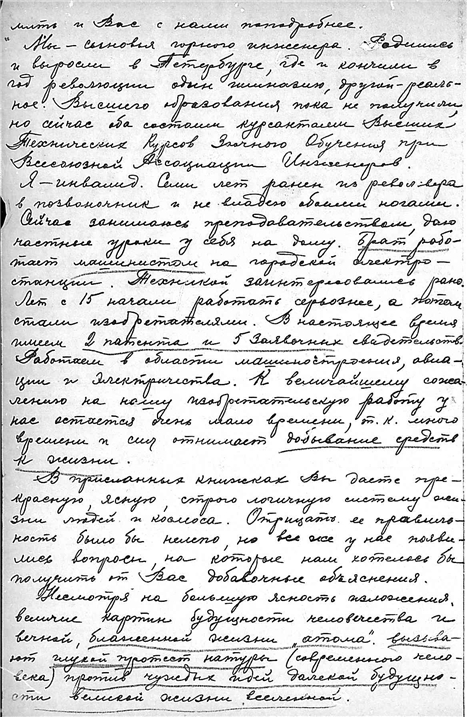 мить и Вас с нами поподробнее.
Мы – сыновья горного инженера. Родились
и выросли в Петербурге, где и кончили в
год революции один гимназию, другой – реаль-
ное. Высшего образования пока не получили,
но сейчас оба состоим курсантами Высших
Технических Курсов Заочного Обучения при
Всесоюзной Ассоциации Инженеров.
Я – инвалид. Семи лет ранен из револьвера
в позвоночник и не владею обоими ногами.
Сейчас занимаюсь преподавательством, даю
частные уроки у себя на дому. Брат рабо-
тает машинистом на городской электро-
станции. Техникой заинтересовались рано.
Лет с 15 начали работать серьознее, а потом
стали изобретателями. В настоящее время
имеем 2 патента и 5 заявочных свидетельств.
Работаем в области машиностроения, авиа-
ции и электричества. К величайшему сожа-
лению на нашу изобретательскую работу у
нас остается очень мало времени, т. к. много
времени и сил отнимает добывание средств
к жизни.
В присланных книжках Вы даете пре-
красную, ясную, строго логичную систему жи-
зни людей и космоса. Отрицать ее правиль-
ность было бы нелепо, но все же у нас появи-
лись вопросы, на которые нам хотелось бы
получить от Вас добавочные объяснения.
Несмотря на большую ясность изложения,
величие картин будущности человечества и
вечной, блаженной жизни „атома“. вызыва-
ют глухой протест натуры (современного чело-
века) против чуждых идей далекой будущно-
сти великой жизни вселенной.